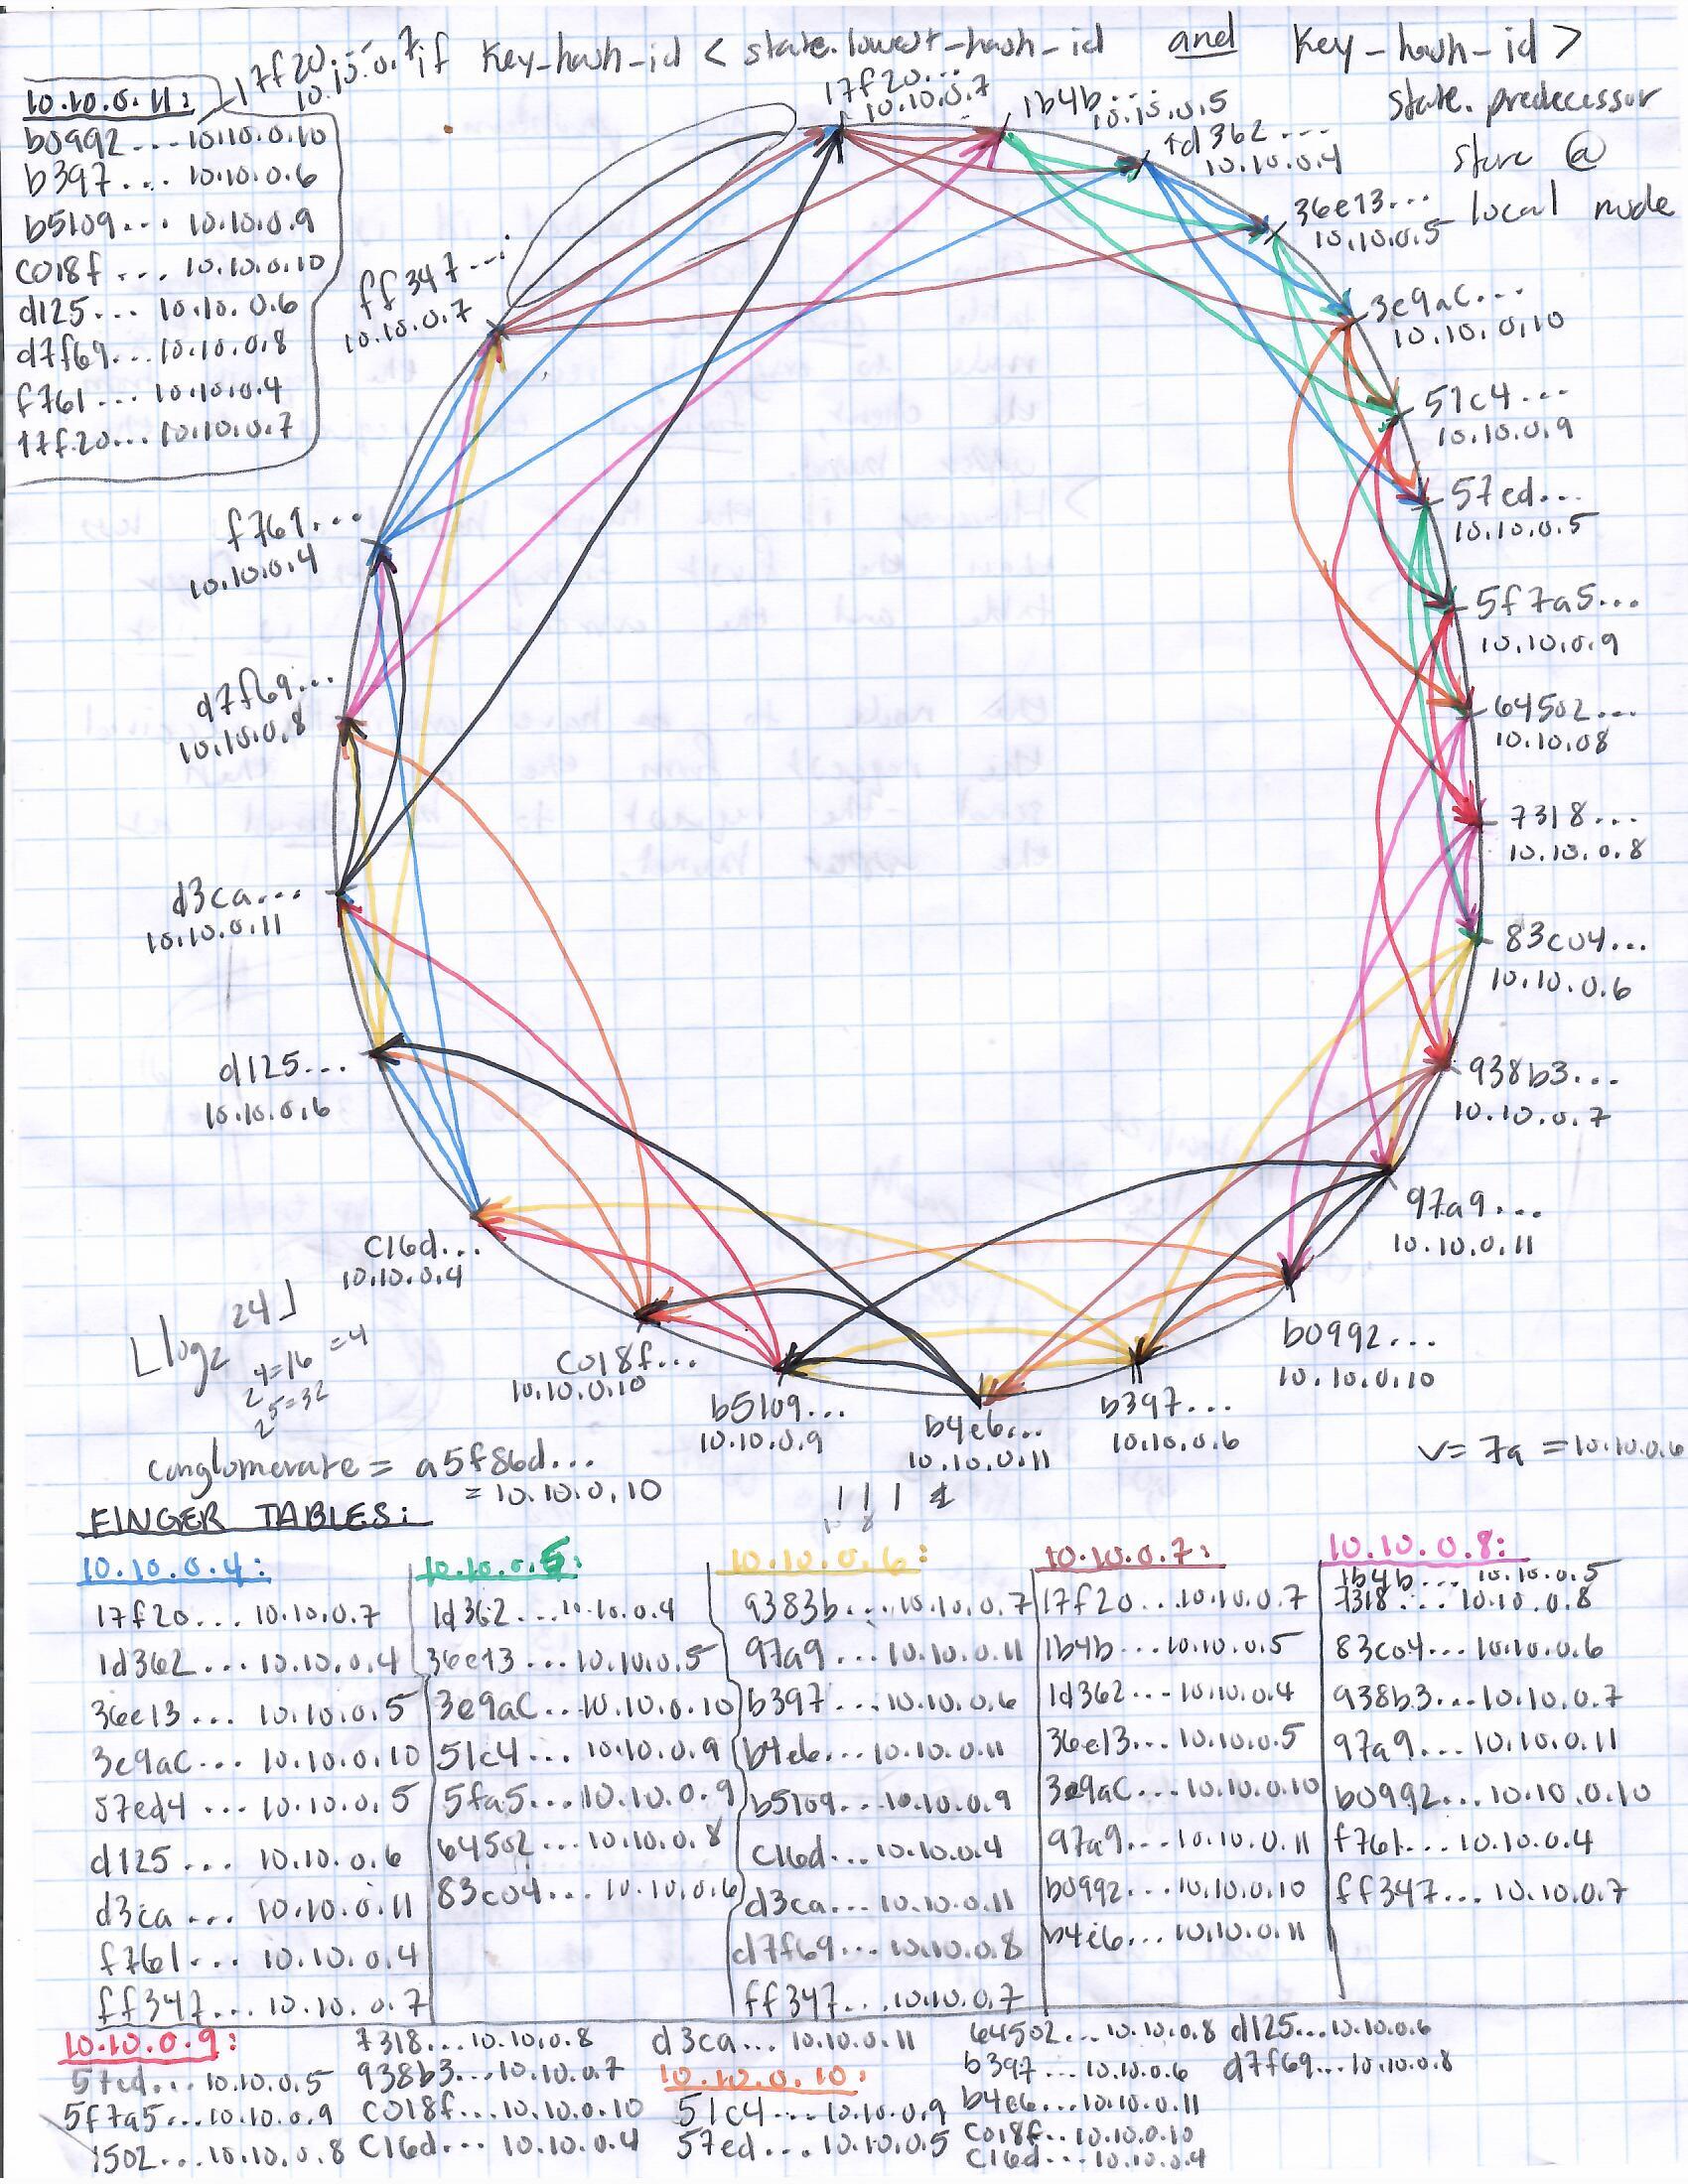 if key_hash_id < state.lowest_hash_id and key_hash_id >
state.predecessor
store @
local node
10.10.0.11:
17f20
10.10.0.7
b0992...10.10.0.10
b397... 10.10.0.6
b5109... 10.10.0.9
c018f... 10.10.0.10
d125... 10.10.0.6
d7f69...10.10.0.8
f761... 10.10.0.4
17f20...10.10.0.7
17f20...
10.10.0.7
1b4b...
10.10.0.5
1d362...
10.10.0.4
36e13...
10.10.0.5
3e9ac...
10.10.0.10
51c4...
10.10.0.9
57ed...
10.10.0.5
5f7a5...
10.10.0.9
64502...
10.10.08
7318...
10.10.0.8
83c04...
10.10.0.6
938b3...
10.10.0.7
97a9...
10.10.0.11
b0992...
10.10.0.10
b397...
10.10.0.6
b4e6...
10.10.0.11
b5109...
10.10.0.9
c018f...
10.10.0.10
c16d...
10.10.0.4
d125...
10.10.0.6
d3ca...
10.10.0.11
d7f69...
10.10.0.8
f761...
10.10.0.4
ff347...
10.10.0.7
⌊log2 24⌋
2^4=16 =4
2^5=32
conglomerate = a5f86d...
= 10.10.0.10
v= 7a =10.10.0.6
FINGER TABLES:
10.10.0.4:
17f20... 10.10.0.7
1d362... 10.10.0.4
36e13... 10.10.0.5
3e9ac... 10.10.0.10
57ed4... 10.10.0.5
d125... 10.10.0.6
d3ca... 10.10.0.11
f761... 10.10.0.4
ff347... 10.10.0.7
10.10.0.5:
1d362...10.10.0.4
36e13...10.10.0.5
3e9ac...10.10.0.10
51c4... 10.10.0.9
5fa5... 10.10.0.9
64502...10.10.0.8
83c04... 10.10.0.6
10.10.0.6:
9383b...10.10.0.7
97a9...10.10.0.11
b397...10.10.0.6
b4e6...10.10.0.11
b5109...10.10.0.9
c16d...10.10.0.4
d3ca...10.10.0.11
d7f69...10.10.0.8
ff347...10.10.0.7
10.10.0.7:
17f20...10.10.0.7
1b4b...10.10.0.5
1d362...10.10.0.4
36e13...10.10.0.5
3e9ac...10.10.0.10
97a9...10.10.0.11
b0992...10.10.0.10
b4e6...10.10.0.11
10.10.0.8:
1b4b... 10.10.0.5
7318... 10.10.0.8
83c04... 10.10.0.6
938b3...10.10.0.7
97a9... 10.10.0.11
b0992...10.10.0.10
f761...10.10.0.4
ff347...10.10.0.7
10.10.0.9:
57ed...10.10.0.5
5f7a5...10.10.0.9
1502...10.10.0.8
7318...10.10.0.8
938b3...10.10.0.7
c018f...10.10.0.10
c16d... 10.10.0.4
d3ca... 10.10.0.11
10.10.0.10:
51c4...10.10.0.9
57ed...10.10.0.5
64502...10.10.0.8
b397...10.10.0.6
b4e6...10.10.0.11
c018f...10.10.0.10
c16d...10.10.0.4
d125...10.10.0.6
d7f69...10.10.0.8